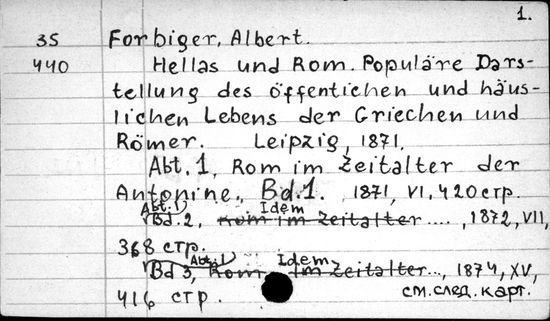 1.
35 Forbiger, Albert.
440 Hellas und Rom. Populäre Dars-
tellung des öffentichen und häus-
lichen Lebens der Griechen und
Römer. Leipzig, 1871.
Abt. 1, Rom im Zeitalter der
Antonine, Bd. 1. 1871, VI, 420 стр.
Abt. 1 Idem
Bd. 2, Rom im Zeitalter ...., 1872, VII,
368 стр.
Abt. 1 Idem
Bd 3, Rom im Zeitalter..., 1874, XV,
416 стр. см. след. карт.